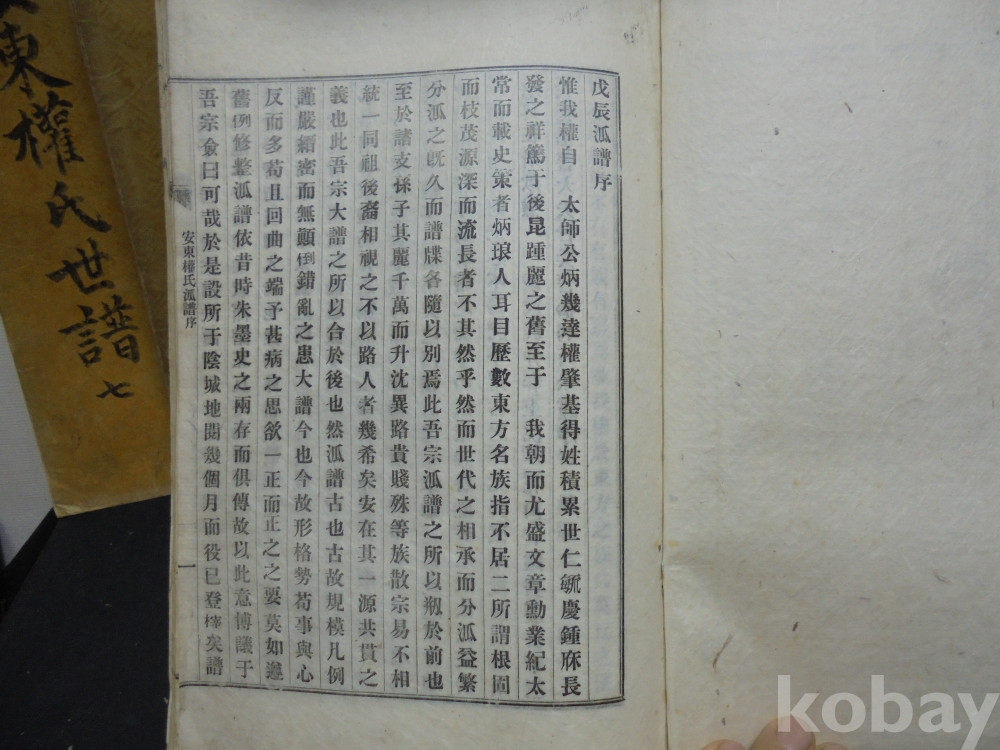 戊辰派譜序
惟我權自太師公炳幾達權肇基得姓積累世仁毓慶鍾庥長
發之祥篤于後昆踵麗之舊至于我朝而尤盛文章勳業紀太
常而載史策者炳琅人耳目歷數東方名族指不居二所謂根固
而枝茂源深而流長者不其然乎然而世代之相承而分派益繁
分派之旣久而譜牒各隨以別焉此吾宗派譜之所以刱於前也
至於諸支孫子其麗千萬而升沈異路貴賤殊等族散宗易不相
統一同祖後裔相視之不以路人者幾希矣安在其一源共貫之
義也此吾宗大譜之所以合於後也然派譜古也古故規模凡例
謹嚴縝密而無顚倒錯亂之患大譜今也今故形格勢苟事與心
反而多苟且回曲之端予甚病之思欲一正而正之之要莫如遵
舊例修整派譜依昔時朱墨史之兩存而俱傳故以此意博議于
吾宗僉曰可哉於是設所于陰城地閱幾個月而役已登梓矣譜
安東權氏派譜序
一
東權氏世譜
七
kobay